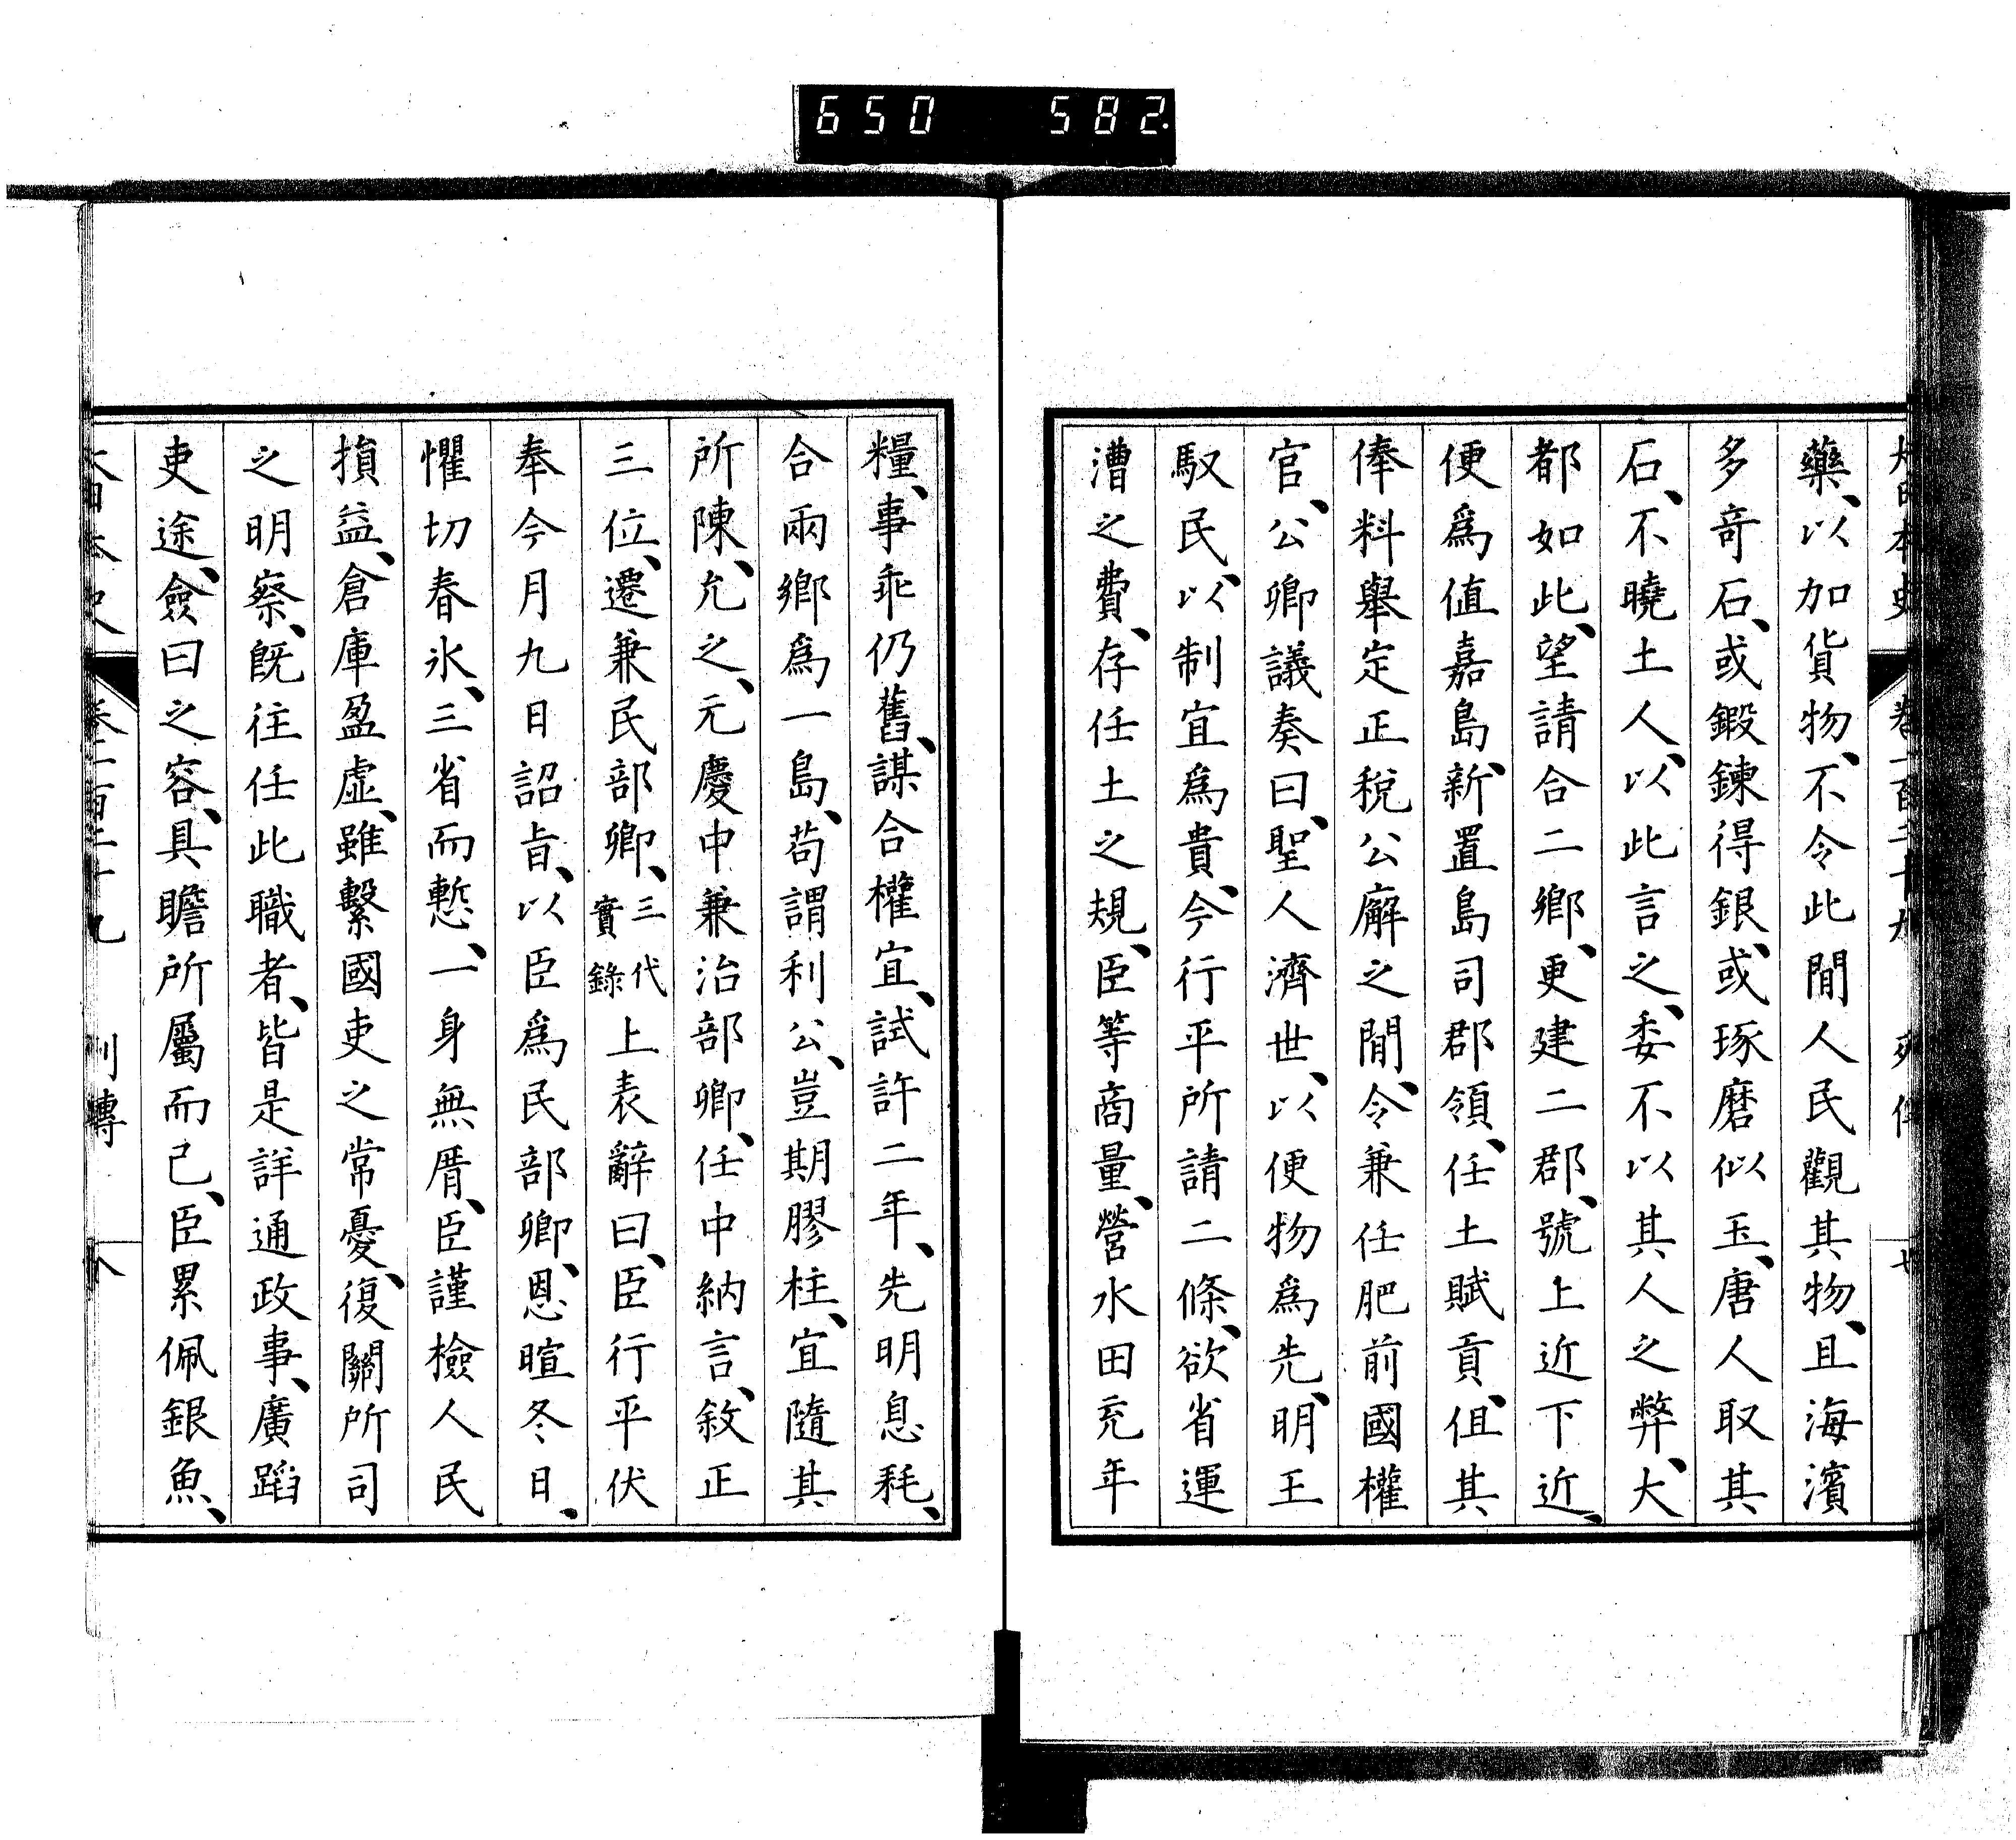 650 582.
藥、以加貨物、不令此閒人民觀其物、且海濱
多奇石、或鍛鍊得銀、或琢磨似玉、唐人取其
石、不曉土人、以此言之、委不以其人之弊、大
都如此、望請合二鄉、更建二郡、號上近下近、
便爲值嘉島、新置島司郡領、任土賦貢、但其
俸料舉定正稅公廨之閒、令兼任肥前國權
官、公卿議奏曰、聖人濟世、以便物爲先、明王
馭民、以制宜爲貴、今行平所請二條、欲省運
漕之費、存任土之規、臣等商量、營水田充年
糧、事乖仍舊、謀合權宜、試許二年、先明息耗、
合兩鄉爲一島、苟謂利公、豈期膠柱、宜隨其
所陳、允之、元慶中兼治部卿、任中納言、敘正
三位、遷兼民部卿、三代實錄上表辭曰、臣行平伏
奉今月九日詔旨、以臣爲民部卿、恩暄冬日、
懼切春氷、三省而慙、一身無厝、臣謹檢人民
損益、倉庫盈虛、雖繫國吏之常憂、復關所司
之明察、旣往任此職者、皆是詳通政事、廣蹈
吏途、僉曰之容、具瞻所屬而已、臣累佩銀魚、